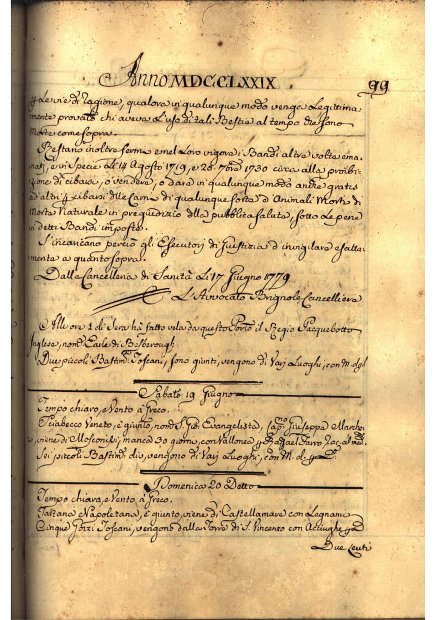 Anno MDCCLXXIX. 99
le vie di ragione, qualora in qualunque modo venga Legittima-
mente provato chi aveva L'uso di tali Bestie al tempo che sono
Morte come sopra.
Restano inoltre ferme e nel Loro vigore i Bandi altre volte ema-
nati, e in Specie Li 14 Agosto 1719, e 20 7bre 1730 circa alla proibi-
zione di cibarsi, o vendere, o dare in qualunque modo anche gratis
ad altri cibarsi delle Carni di qualunque sorta d'Animali Morti di
Morte Naturale in pregiudizio della pubblica Salute, sotto Le pene
in detti Bandi imposte.
S'incaricano perciò gli Esecutori di Giustizia d'invigilare esatta-
mente a quanto sopra.
Dalla Cancelleria di Sanità Li 17 Giugno 1779
L'Avvocato Brignole Cancelliere
Alle ore 2 di Sera hà fatto vela da questo Porto il Regio Pacquebotto
Inglese, nom.
Due piccoli Bastim. Toscani, sono giunti, vengono di Varj Luoghi, con M.
Sabato 19 Giugno
Tempo chiaro, e Vento à Greco.
Trabacco Veneto, è giunto, nom. S. Gio: Evangelista, Giuseppe
viene di manca 30 giorni, con Vallonea
Sei piccoli Bastim. vengono di Varj Luoghi, con M.
Domenica 20 Detto
Tempo chiaro, e Vento, à Greco.
Tartana Napoletana, è giunta, viene di Castellamare con Legnami
Cinque Gozzi Toscani, vengono dalla Torre di S. Vincenzo con Acciughe
Due Leuti